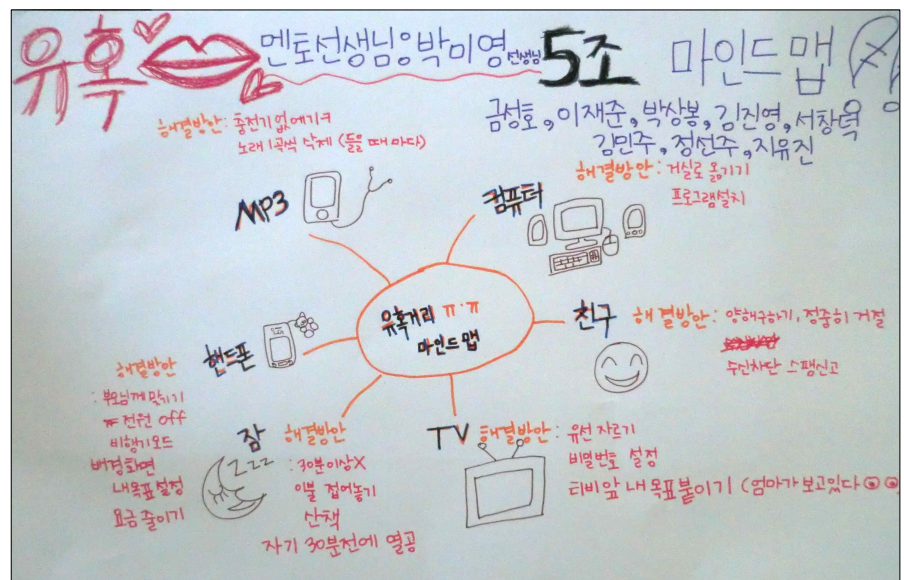 유혹
멘토선생님 박미영 선생님
5조 마인드 맵
금성호, 이재준, 박상봉, 김진영, 서창덕
김민주, 정선주, 지유진
해결방안: 충전기 없애기
노래 1곡씩 삭제 (들을 때 마다)
MP3
컴퓨터
해결방안: 거실로 옮기기
프로그램설치
유혹거리 ㅠ.ㅠ
마인드 맵
친구
해결방안: 양해구하기, 정중히 거절
수신차단 스팸신고
핸드폰
해결방안
: 부모님께 맡기기
전원 off
비행기모드
배경화면
내 목표 설정
요금 줄이기
잠
zzz
해결방안
: 30분이상X
이불 접어놓기
산책
자기 30분전에 열공
TV
해결방안: 유선 자르기
비밀번호 설정
티비 앞 내 목표 붙이기 (엄마가 보고있다